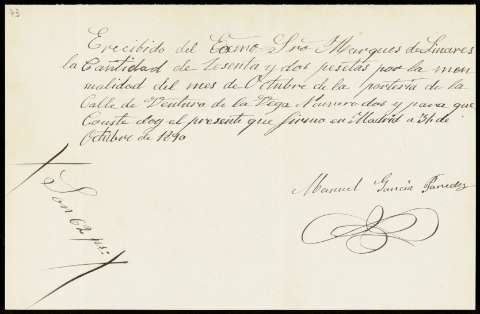 73
E recibido del Exmo. Sro. Marques de Linares
la Cantidad de Sesenta y dos pesetas por la men
sualidad del mes de Octubre de la porteria de la
Calle de Ventura de la Vega Numero dos y para que
Conste doy el presente que firmo en Madrid a 31 de
Octubre de 1890
Manuel Garcia Paredes
Son 62 ps: